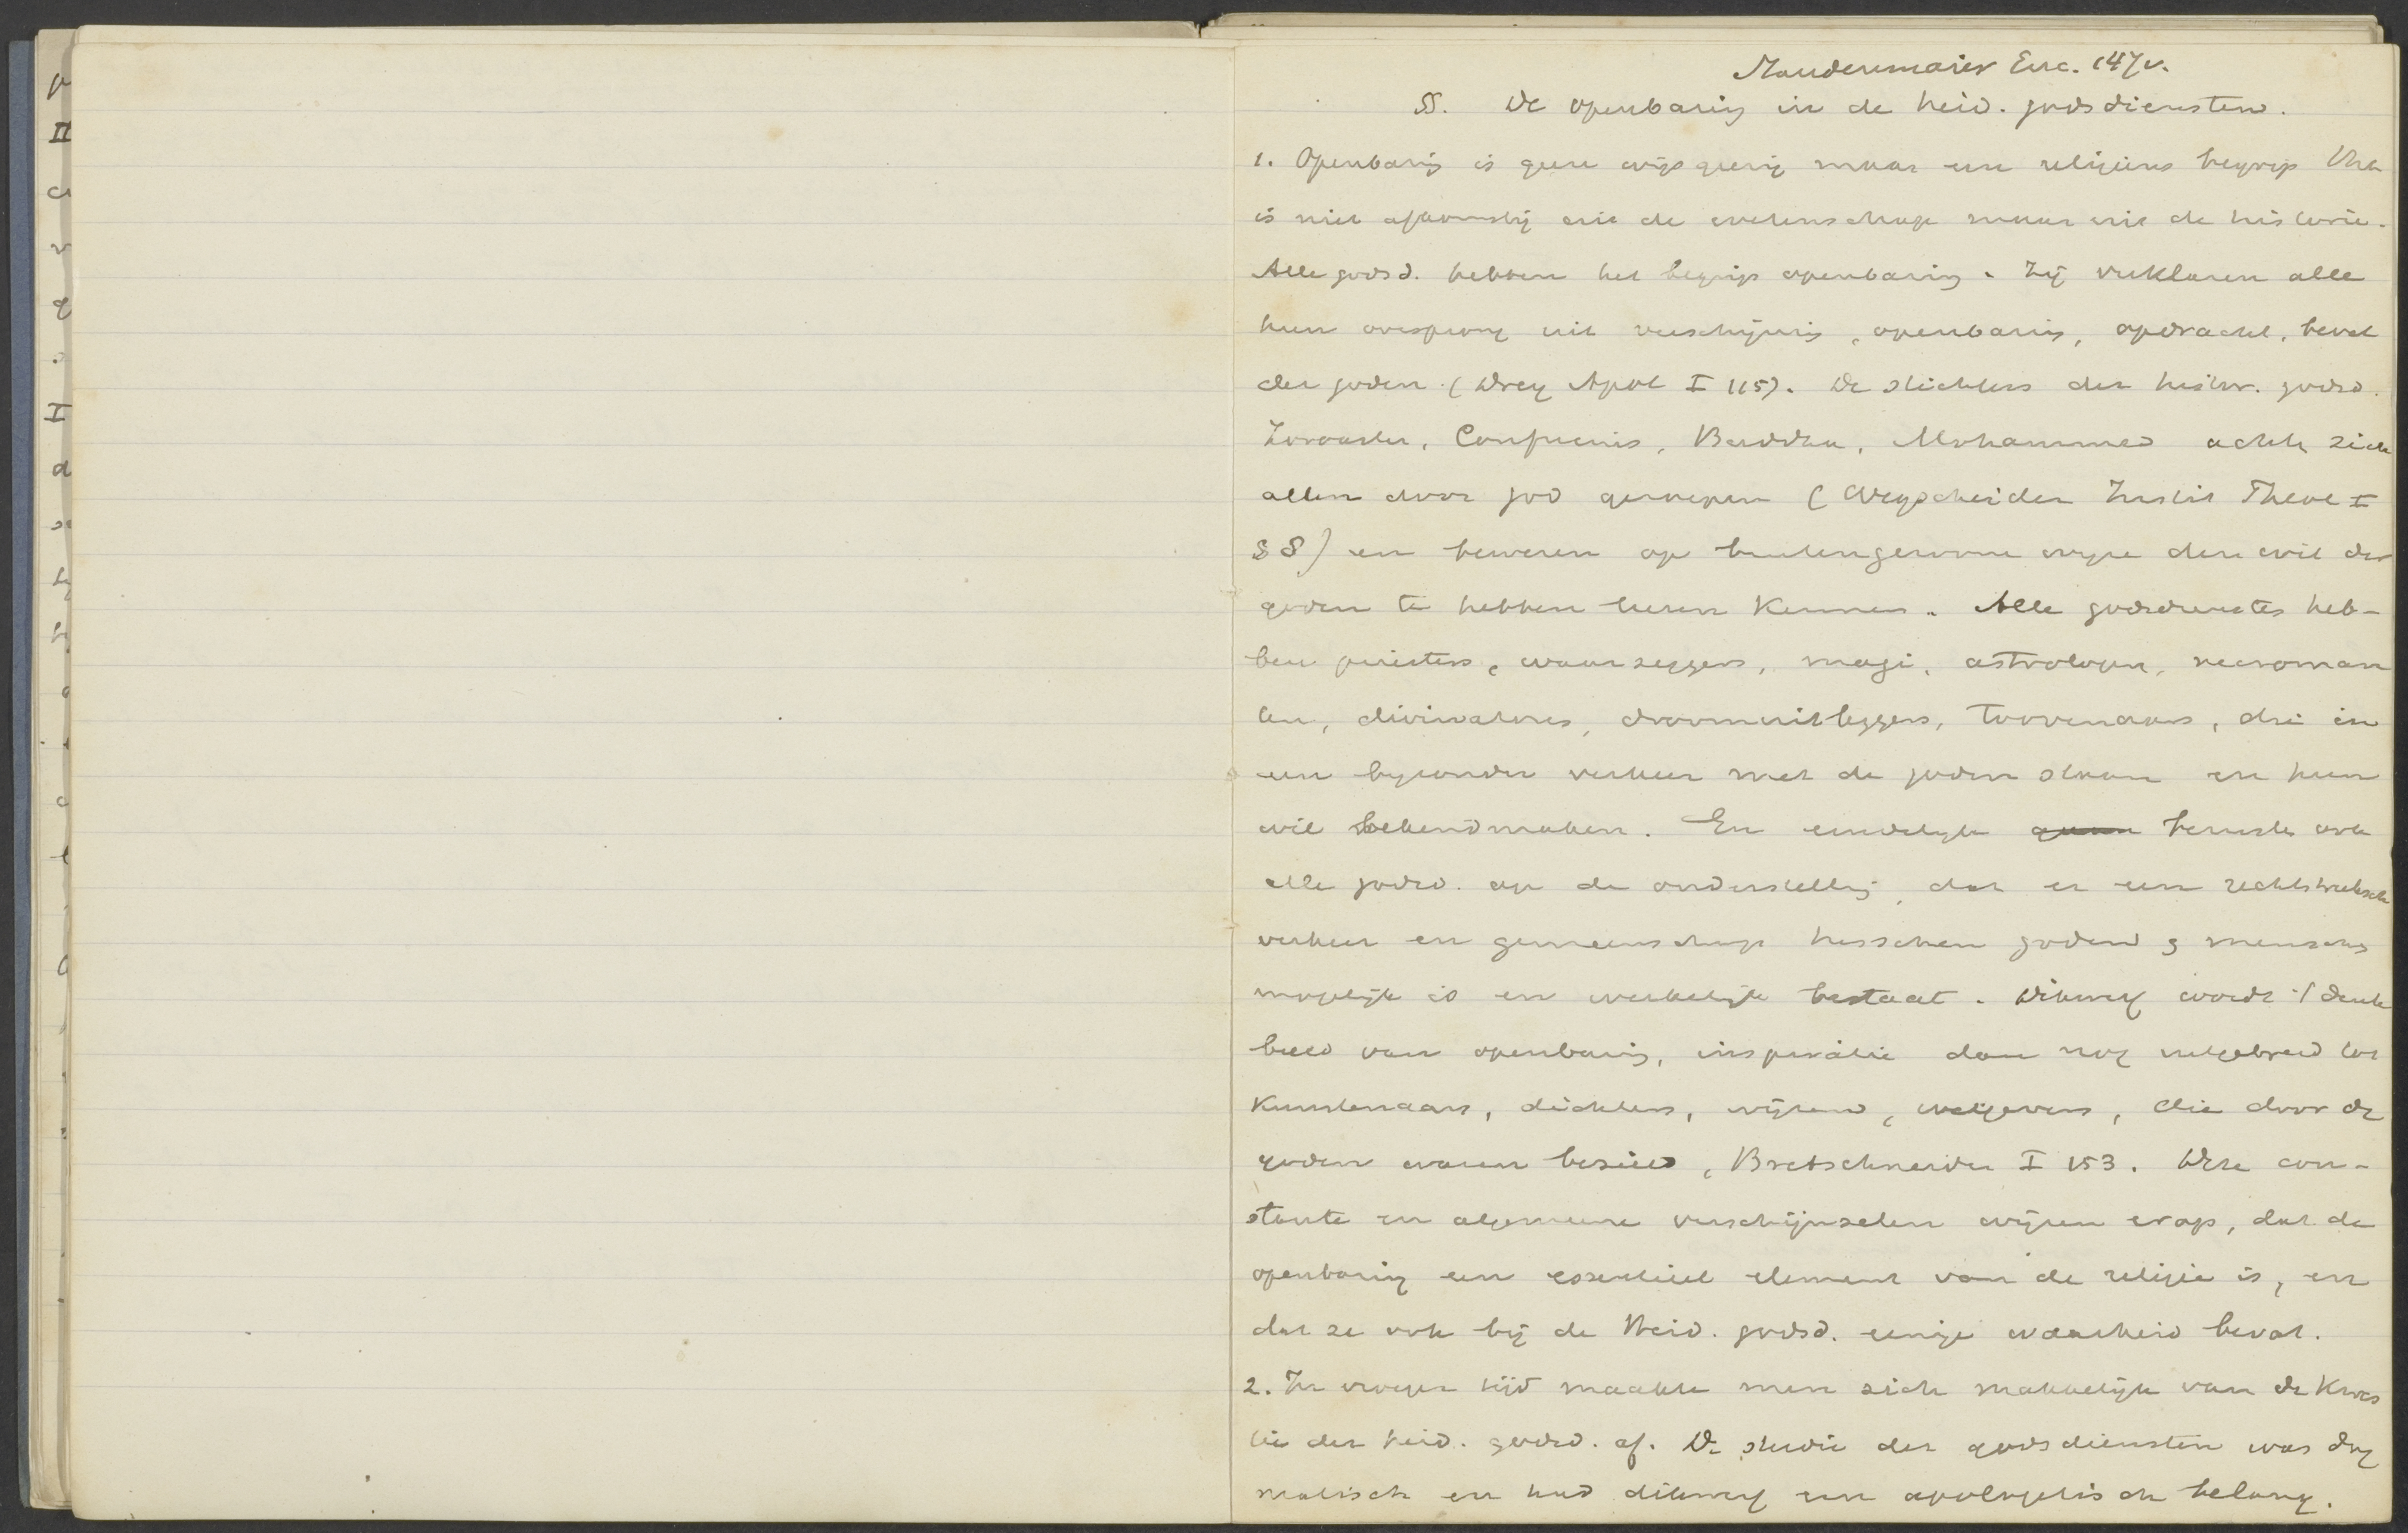 Staudenmaier Enc. 147v.
§. De openbaring in de heid. godsdiensten.
1. Openbaring is geen wijsgeerig maar een religieus begrip
is niet afkomstig uit de wetenschap maar uit de historie.
Alle godsd. hebben het begrip openbaring. Zij verklaren alle
hun oorsprong uit verschijning, openbaring, opdracht, bevel
der goden (Drey Apol I 115). De stichters der histor. godsd.
Zoroaster, Confucius, Buddha, Mohammed achtt. zich
allen door god geroepen (Wegscheider Instit Theol I
§ 8) en beweren op buitengewone wijze den wil der
goden te hebben leeren kennen. Alle godsdiensten heb-
ben priesters, waarzeggers, magi, astrologen, necroman
ten, divinatores, droomuitleggers, toovenaars, die in
een byzonder verkeer met de goden staan en hun
wil bekendmaken. En eindelijk berusten ook
alle godsd. op de onderstelling, dat er een rechtstreeksch
verkeer en gemeenschap tusschen goden & menschen
mogelijk is en werkelijk bestaat. Dikwerf wordt 't denk
beeld van openbaring, inspiratie dan nog uitgebreid tot
kunstenaars, dichters, wijzen, wetgevers, die door de
goden waren bezield, Bretschneider I 153. Deze con-
stante en algemeene verschijnselen wijzen erop, dat de
openbaring een essentieel element van de religie is, en
dat ze ook bij de Heid. godsd. eenige waarheid bevat.
2. In vroeger tijd maakte men zich makkelijk van de kwes
tie der heid. godsd. af. De studie der godsdiensten was dog
matisch en had dikwerf een apologetisch belang.